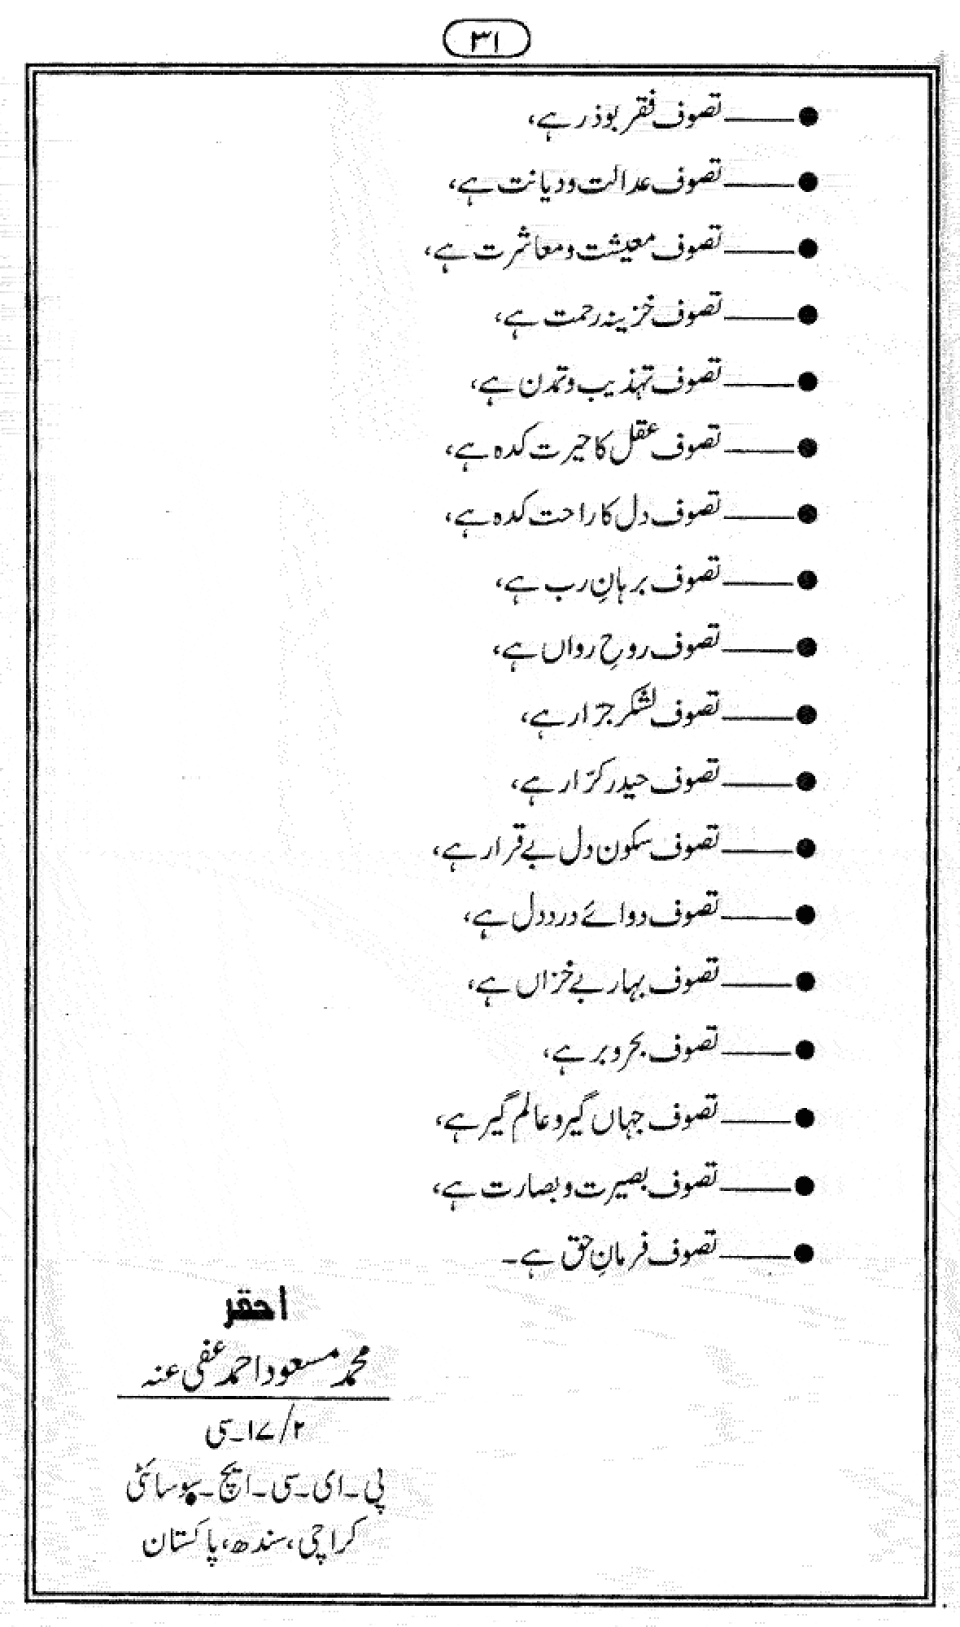 ۳۱
● ——— تصوف فقر بوذر ہے،
● ——— تصوف عدالت و دیانت ہے،
● ——— تصوف معیشت و معاشرت ہے،
● ——— تصوف خزینہ رحمت ہے،
● ——— تصوف تہذیب و تمدن ہے،
● ——— تصوف عقل کا حیرت کدہ ہے،
● ——— تصوف دل کا راحت کدہ ہے،
● ——— تصوف برہانِ رب ہے،
● ——— تصوف روحِ رواں ہے،
● ——— تصوف لشکر جرّار ہے،
● ——— تصوف حیدر کرّار ہے،
● ——— تصوف سکون دل بے قرار ہے،
● ——— تصوف دوائے درد دل ہے،
● ——— تصوف بہار بے خزاں ہے،
● ——— تصوف بحر و بر ہے،
● ——— تصوف جہاں گیر و عالم گیر ہے،
● ——— تصوف بصیرت و بصارت ہے،
● ——— تصوف فرمانِ حق ہے۔
احقر
محمد مسعود احمد عفی عنہ
۱۷/۲۔سی
پی۔ای۔سی۔ایچ۔سوسائٹی
کراچی، سندھ، پاکستان